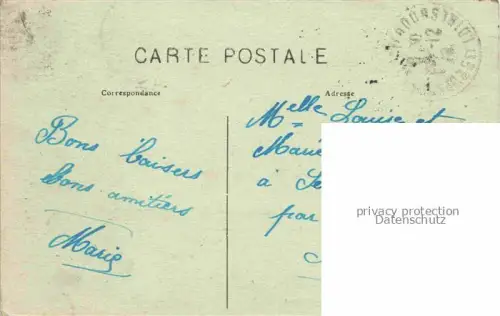 CARTE POSTALE
Correspondance
Adresse
Bons baisers
bons amitiers
Marie
Melle Louise et
Marie
à
par
privacy protection
Datenschutz